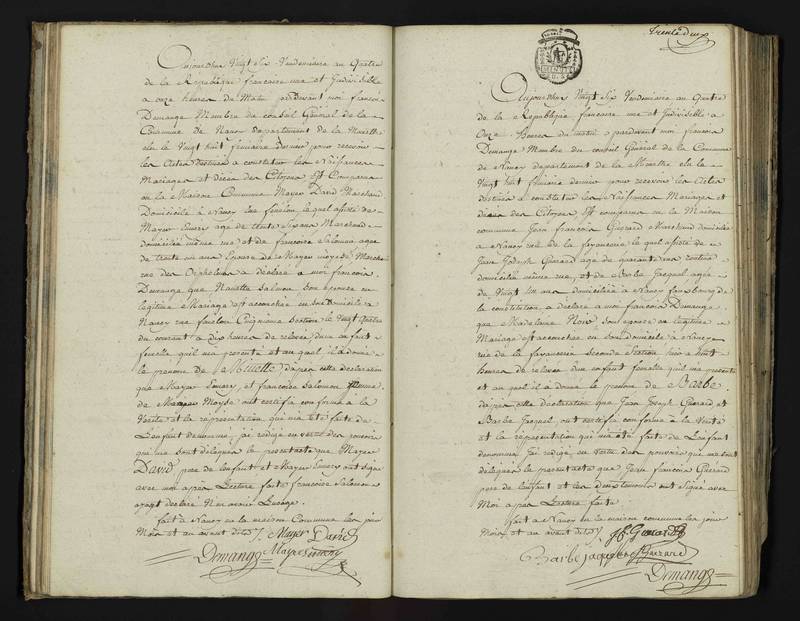 Aujourdhui Vingt Six Vendemiaire an Quatre
de la Republique francaise une et Indivisible
a onze heures du Matin pardevant moi francois
Demange Membre du conseil Général de la
Commune de Nancy departement de la Meurthe
elu le Vingt huit frimaire dernier pour recevoir
les Actes destinés a constater les Naissances
Mariages et décès des Citoyens Est Comparu
en la Maison Commune Mayer David Marchand
Domicilié à Nancy rue lequel assisté de
Mayer age de trente Six ans Marchand
domicilié même rue et de francoise Salomon agee
de trente un ans Epouse de Mayer Moyse Marchand
rue des Orphelins a déclaré a moi francois
Demange que Salomon Son épouse en
legitime Mariage est accouchée en son Domicile a
Nancy rue Cinquieme Section le Vingt Quatre
du courant a dix heures de relevée d'un enfant
femelle qu'il m'a presenté et auquel il a donné
le prenom de d'après cette declaration
que Mayer et francoise Salomon femme
de Mayer Moyse ont certifié conforme à la
Verité et la représentation qui m'a été faite de
L'enfant denommé, j'ai rédigé en vertu des pouvoirs
qui me sont délégués le present acte que Mayer
David pere de l'enfant et Mayer ont signé
avec moi après Lecture faite francoise Salomon
ayant declaré N'en avoir l'usage.
fait a Nancy en la maison Commune les jour
Mois et an avant dits /. Mayer David
Demange Mayer
trente deux
Aujourdhuy Vingt Six Vendemiaire an Quatre
de la Republique francaise une et Indivisible a
Onze heures du matin pardevant moi francois
Demange Membre du conseil Général de la Commune
de Nancy departement de la Meurthe elu le
Vingt huit frimaire dernier pour recevoir les Actes
destinés a constater les Naissances Mariages et
décès des Citoyens Est comparu en la Maison
commune Jean francois Guerard Marchand domicilié
a Nancy rue de la fayencerie lequel assisté de
Jean Joseph Guerard agé de quarante
domicilié même rue, et de Barbe Jacquel agée
de Vingt un ans domiciliée a Nancy fauxbourg de
la constitution a déclaré a moi francois Demange
que Madelaine Noir Son epouse en legitime
Mariage est accouchée en son domicile a Nancy
rue de la fayencerie Seconde Section hier a huit
heures de relevée d'un enfant femelle qu'il m'a presenté
et auquel il a donné le prenom de Barbe.
d'après cette déclaration que Jean Joseph Guerard et
Barbe Jacquel, ont certifié conforme a la Verité
et la représentation qui m'a été faite de L'enfant
denommé, j'ai redigé en vertu des pouvoirs qui me sont
délégués le present acte que Jean francois Guerard
pere de l'enfant et les deux temoins ont Signé avec
Moi apres Lecture faite
fait a Nancy en la maison commune les jour
Mois et an avant dits /. Guerard
Barbe jaquel Guerard
Demange